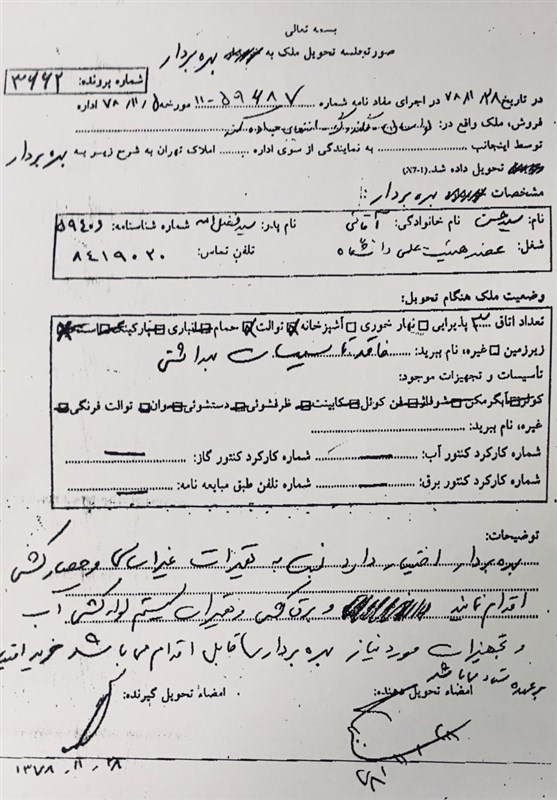 بسمه تعالی
صورتجلسه تحویل ملک به بهره بردار
شماره پرونده: ۳۶۶۲
در تاریخ ۷۸/۱۱/۲۸ در اجرای مفاد نامه شماره ۵۹۶۸۷-۱۱ مورخه ۷۸/۱۱/ اداره
فروش، ملک واقع در:
توسط اینجانب به نمایندگی از سوی اداره املاک تهران به شرح زیر به بهره بردار
تحویل داده شد. (X7-1)
مشخصات بهره بردار:
نام: سید حسن نام خانوادگی: آقائی نام پدر: سید فضل اله شماره شناسنامه: ۵۹۴۰۶
شغل: عضو هیئت علمی دانشگاه تلفن تماس: ۸۴۱۹۰۲۰
وضعیت ملک هنگام تحویل:
تعداد اتاق ۳ پذیرایی نهار خوری آشپزخانه توالت حمام انباری پارکینگ
زیرزمین غیره، نام ببرید: فاقد تاسیسات بهداشتی
تأسیسات و تجهیزات موجود:
کولر آبگرمکن شوفاژ فن کوئل کابینت ظرفشوئی دستشوئی وان توالت فرنگی
غیره، نام ببرید:
شماره کارکرد کنتور آب: — شماره کارکرد کنتور گاز: —
شماره کارکرد کنتور برق: — شماره تلفن طبق مبایعه نامه: —
توضیحات:
بهره بردار اختیار دارد نسبت به تغییرات غیر اساسی و حصارکشی
اقدام نماید و برق کشی و تغییرات سیستم لوله کشی آب
و تجهیزات مورد نیاز بهره بردار قابل اقدام می باشد
بر عهده ستاد می باشد
امضاء تحویل دهنده: امضاء تحویل گیرنده:
۱۳۷۸/۱۱/۲۸